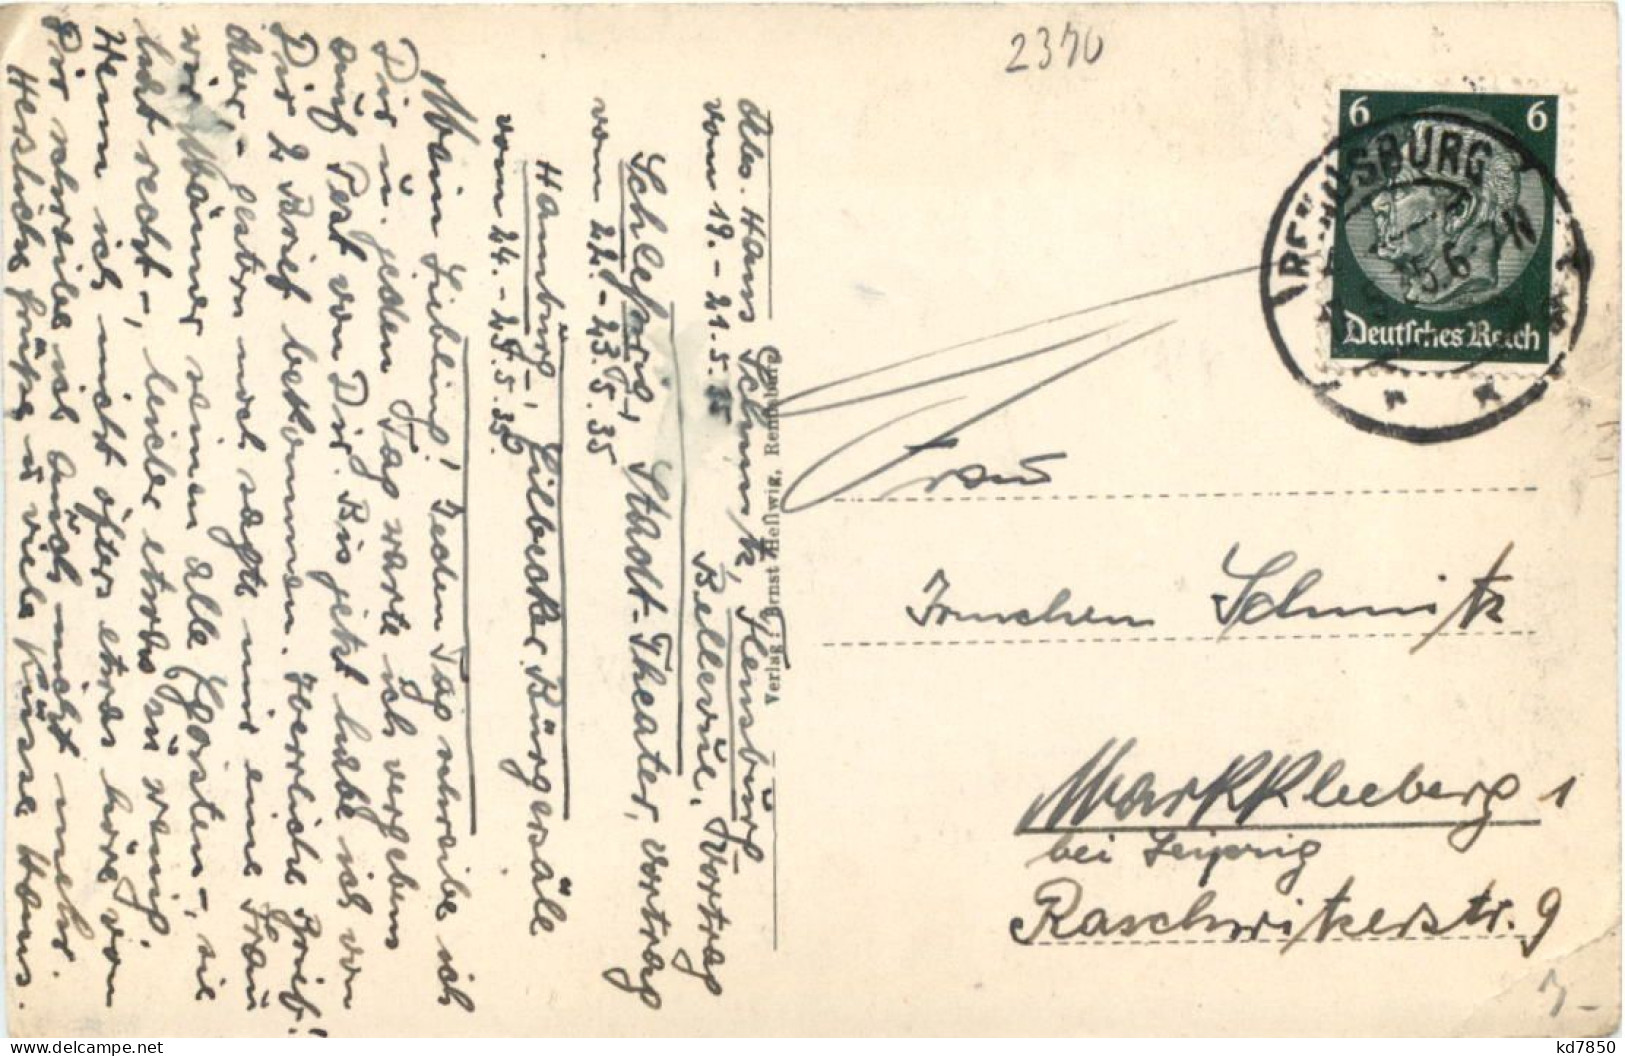 2370
6 6
RENDSBURG
Deutsches Reich
Abs. Hans Schmitz, Flensburg
vom 19.-21.5.35 Bellevue, Vortrag
Schleswig, Stadt-Theater, Vortrag
vom 22.-23.5.35
Hamburg, Eilbecker Bürgersäle
vom 24.-25.5.35.
Mein Liebling! Jeden Tag schreibe ich
Dir u. jeden Tag warte ich vergebens
auf Post von Dir. Bis jetzt habe ich von
Dir 2 Brief bekommen. Herrliche Brief!
Aber,- gestern noch sagte mir eine Frau
wir Männer seinen alle Egoisten-, sie
hat recht-, leider etwas zu wenig.
Wenn ich nicht öfters etwas höre von
Dir schreibe ich auch nicht mehr.
Herzliche Grüße u viele Küsse Hans.
Verlag: Ernst Hellwig, Rendsburg
Frau
Irmchen Schmitz
Markkleeberg 1
bei Leipzig
Raschwitzerstr. 9
kd7850